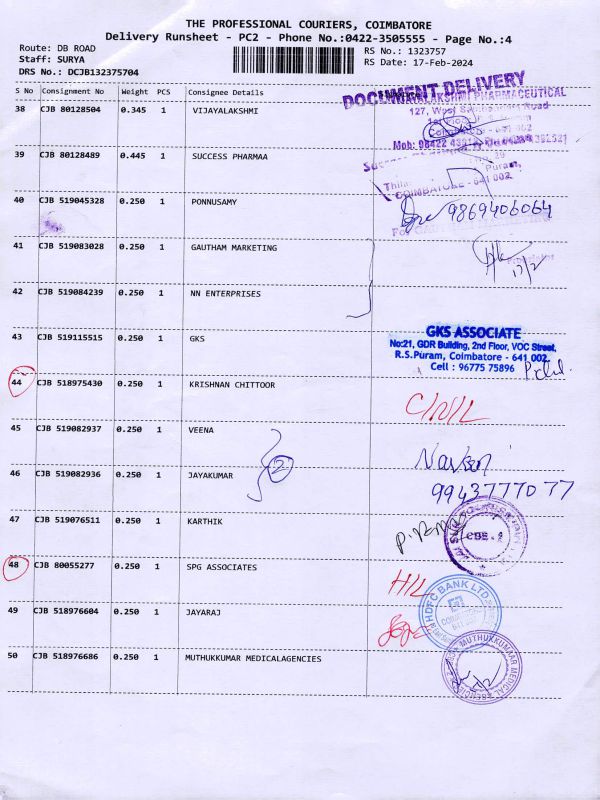 THE PROFESSIONAL COURIERS, COIMBATORE
Delivery Runsheet - PC2 - Phone No.:0422-3505555 - Page No.:4
Route: DB ROAD
Staff: SURYA
DRS No.: DCJB132375704
RS No.: 1323757
RS Date: 17-Feb-2024
S No Consignment No Weight PCS Consignee Details
DOCUMENT DELIVERY
38 CJB 80128504 0.345 1 VIJAYALAKSHMI
PHARMACEUTICAL
127, West
Road
39 CJB 80128489 0.445 1 SUCCESS PHARMAA
Puram,
COIMBATORE - 641 002.
40 CJB 519045328 0.250 1 PONNUSAMY
9869406064
41 CJB 519083028 0.250 1 GAUTHAM MARKETING
17/2
42 CJB 519084239 0.250 1 NN ENTERPRISES
43 CJB 519115515 0.250 1 GKS
GKS ASSOCIATE
No:21, GDR Building, 2nd Floor, VOC Street,
R.S.Puram, Coimbatore - 641 002.
Cell : 96775 75896
44 CJB 518975430 0.250 1 KRISHNAN CHITTOOR
C/N/L
45 CJB 519082937 0.250 1 VEENA
2
46 CJB 519082936 0.250 1 JAYAKUMAR
9943777077
47 CJB 519076511 0.250 1 KARTHIK
48 CJB 80055277 0.250 1 SPG ASSOCIATES
H/L
HDFC BANK LTD
49 CJB 518976604 0.250 1 JAYARAJ
50 CJB 518976686 0.250 1 MUTHUKKUMAR MEDICALAGENCIES
MUTHUKKUMAAR MEDICAL